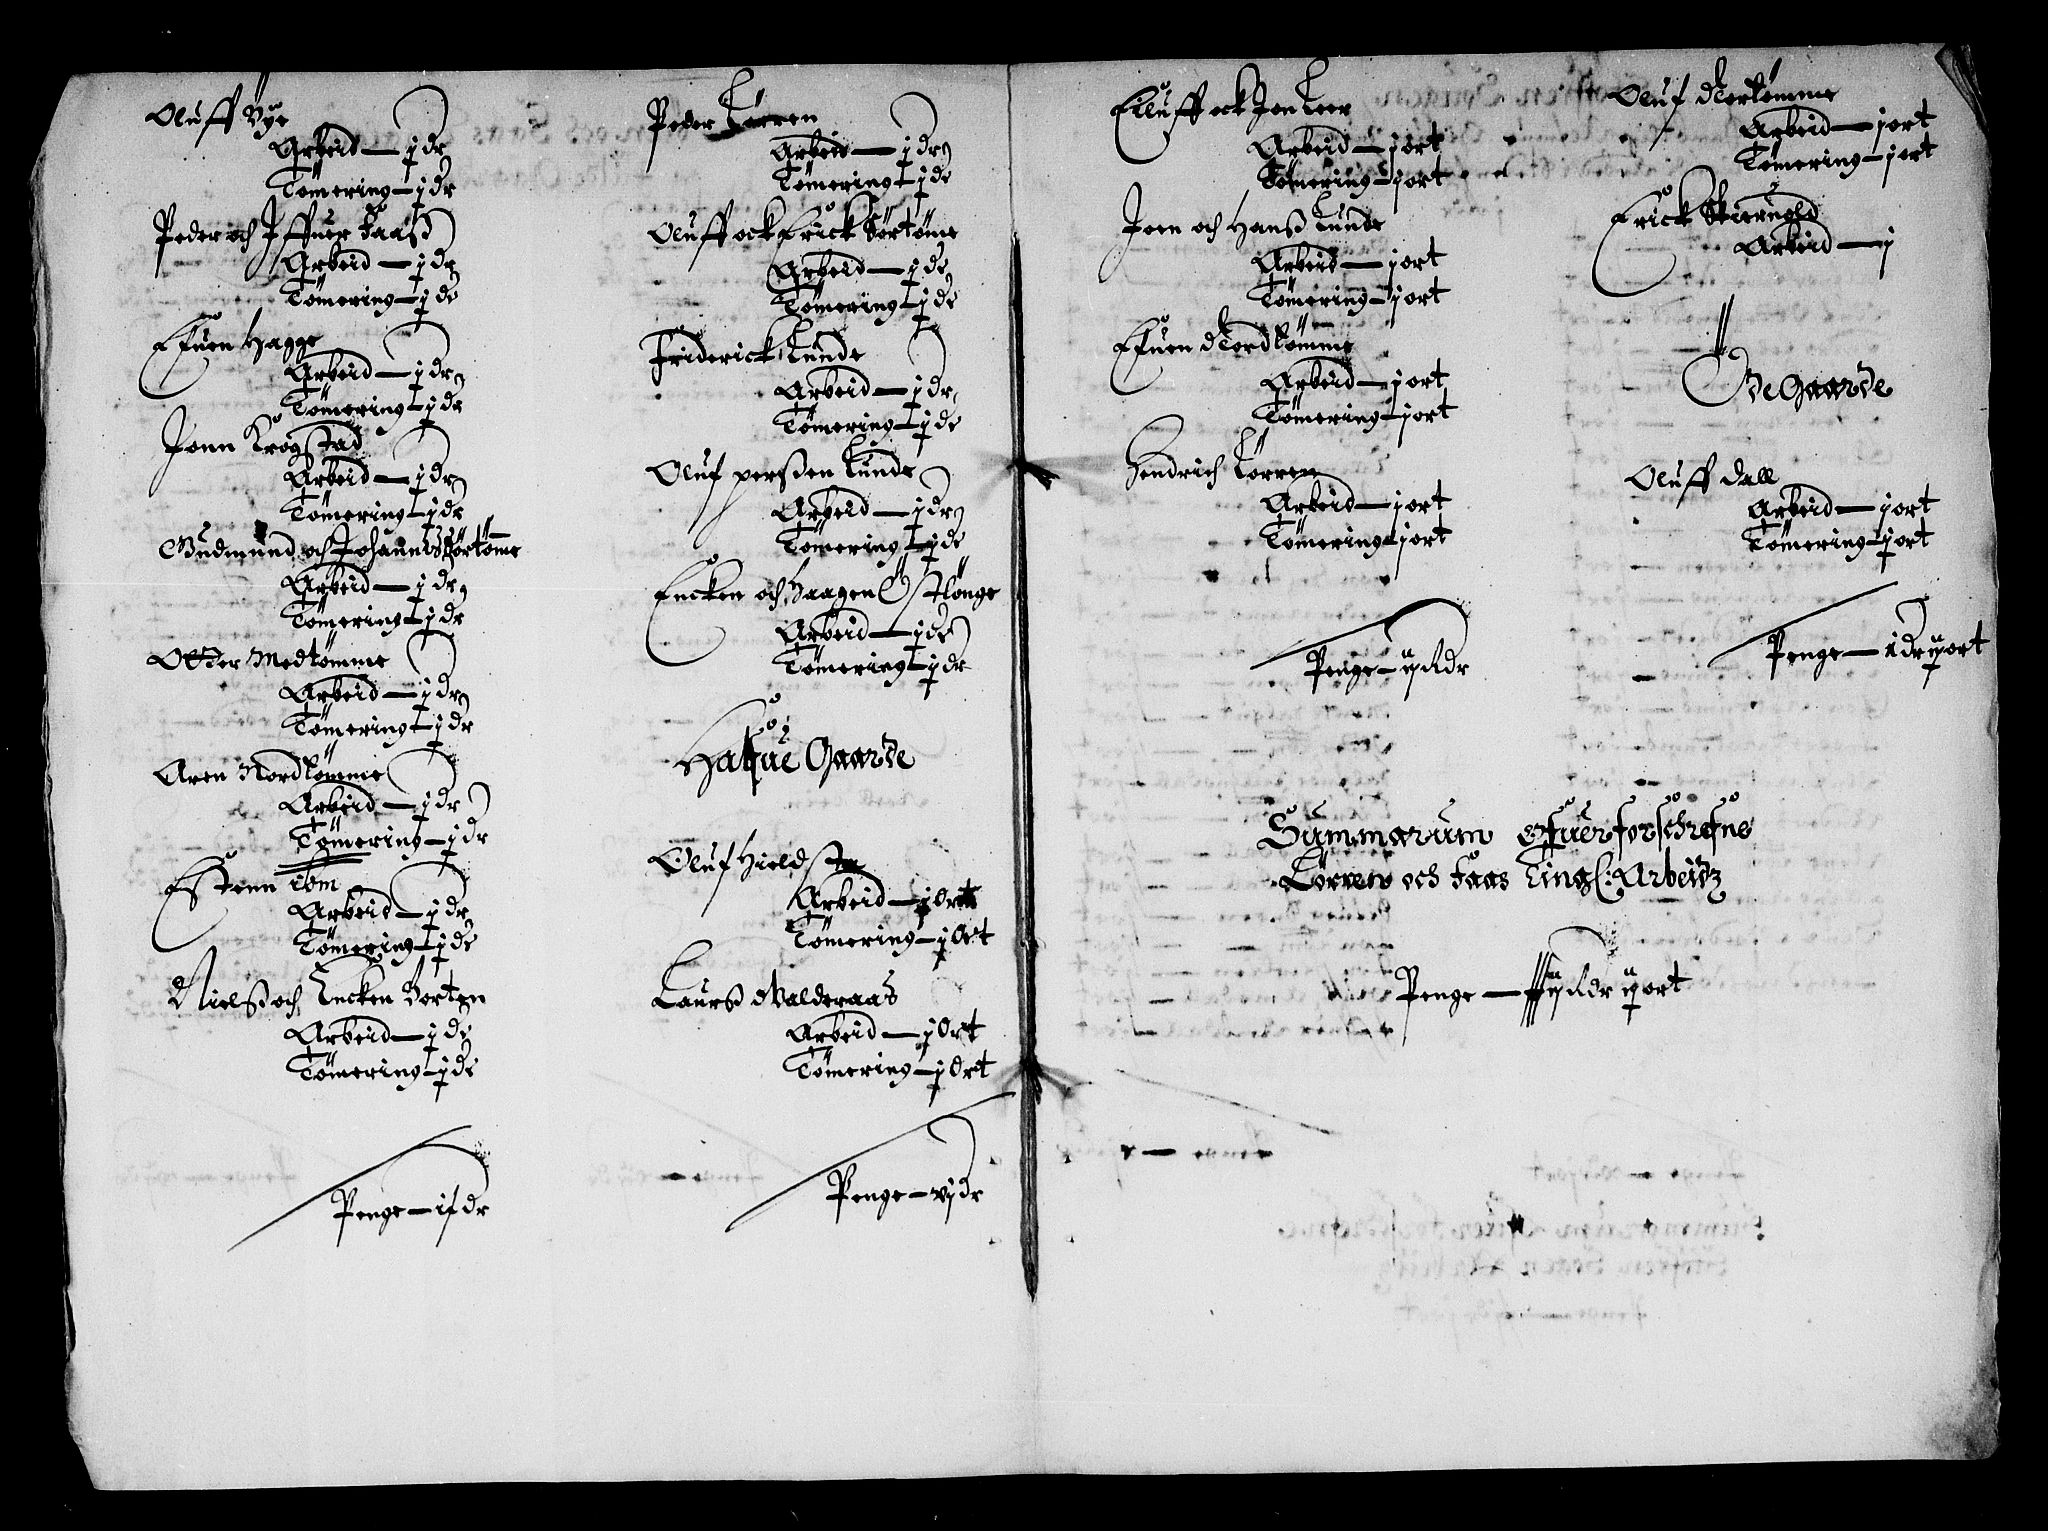 Oluff Bye
Arbeid — j dr
Tömering — j dr
Peder och Iffuer Faaß
Arbeid — j dr
Tömering — j dr
Efuen Hagge
Arbeid — j dr
Tömering — j dr
Jonn Krogstad
Arbeid — j dr
Tömering — j dr
Gudmund och Johannis Sörtömme
Arbeid — j dr
Tömering — j dr
Medtömme
Arbeid — j dr
Tömering — j dr
Aren Nordtömme
Arbeid — j dr
Tömering — j dr
Estenn ibm
Arbeid — j dr
Tömering — j dr
Nielß och Encken Borten
Arbeid — j dr
Tömering — j dr
Penge — dr
Peder Lörren
Arbeid — j dr
Tömering — j dr
Oluff ock Erick Sörtöme
Arbeid — j dr
Tömering — j dr
Friderick Lunde
Arbeid — j dr
Tömering — j dr
Oluf perßen Lunde
Arbeid — j dr
Tömering — j dr
Encken och Haagen Östlönge
Arbeid — j dr
Tömering — j dr
Halfue Gaarde
Oluf
Arbeid — j Ort
Tömering — j Ort
Laurß Valderaas
Arbeid — j Ort
Tömering — j Ort
Penge — vj dr
Eiluff ock Jon Leer
Arbeid — j ort
Tömering — j ort
Joen och Hanß Lunde
Arbeid — j ort
Tömering — j ort
Efuen Nordtömme
Arbeid — j ort
Tömering — j ort
Hendrich Lörren
Arbeid — j ort
Tömering — j ort
Penge — ij Rdr
Oluf Nortömme
Arbeid — j ort
Tömering — j ort
Erick Skieruold
Arbeid — j
Öde Gaarde
Oluff Dall
Arbeid — j ort
Tömering — j ort
Penge — 1 dr ij ort
Summarum offuer forschrefne
Lörren och Faas Tingl: Arbeidz
Penge — Rdr ij ort